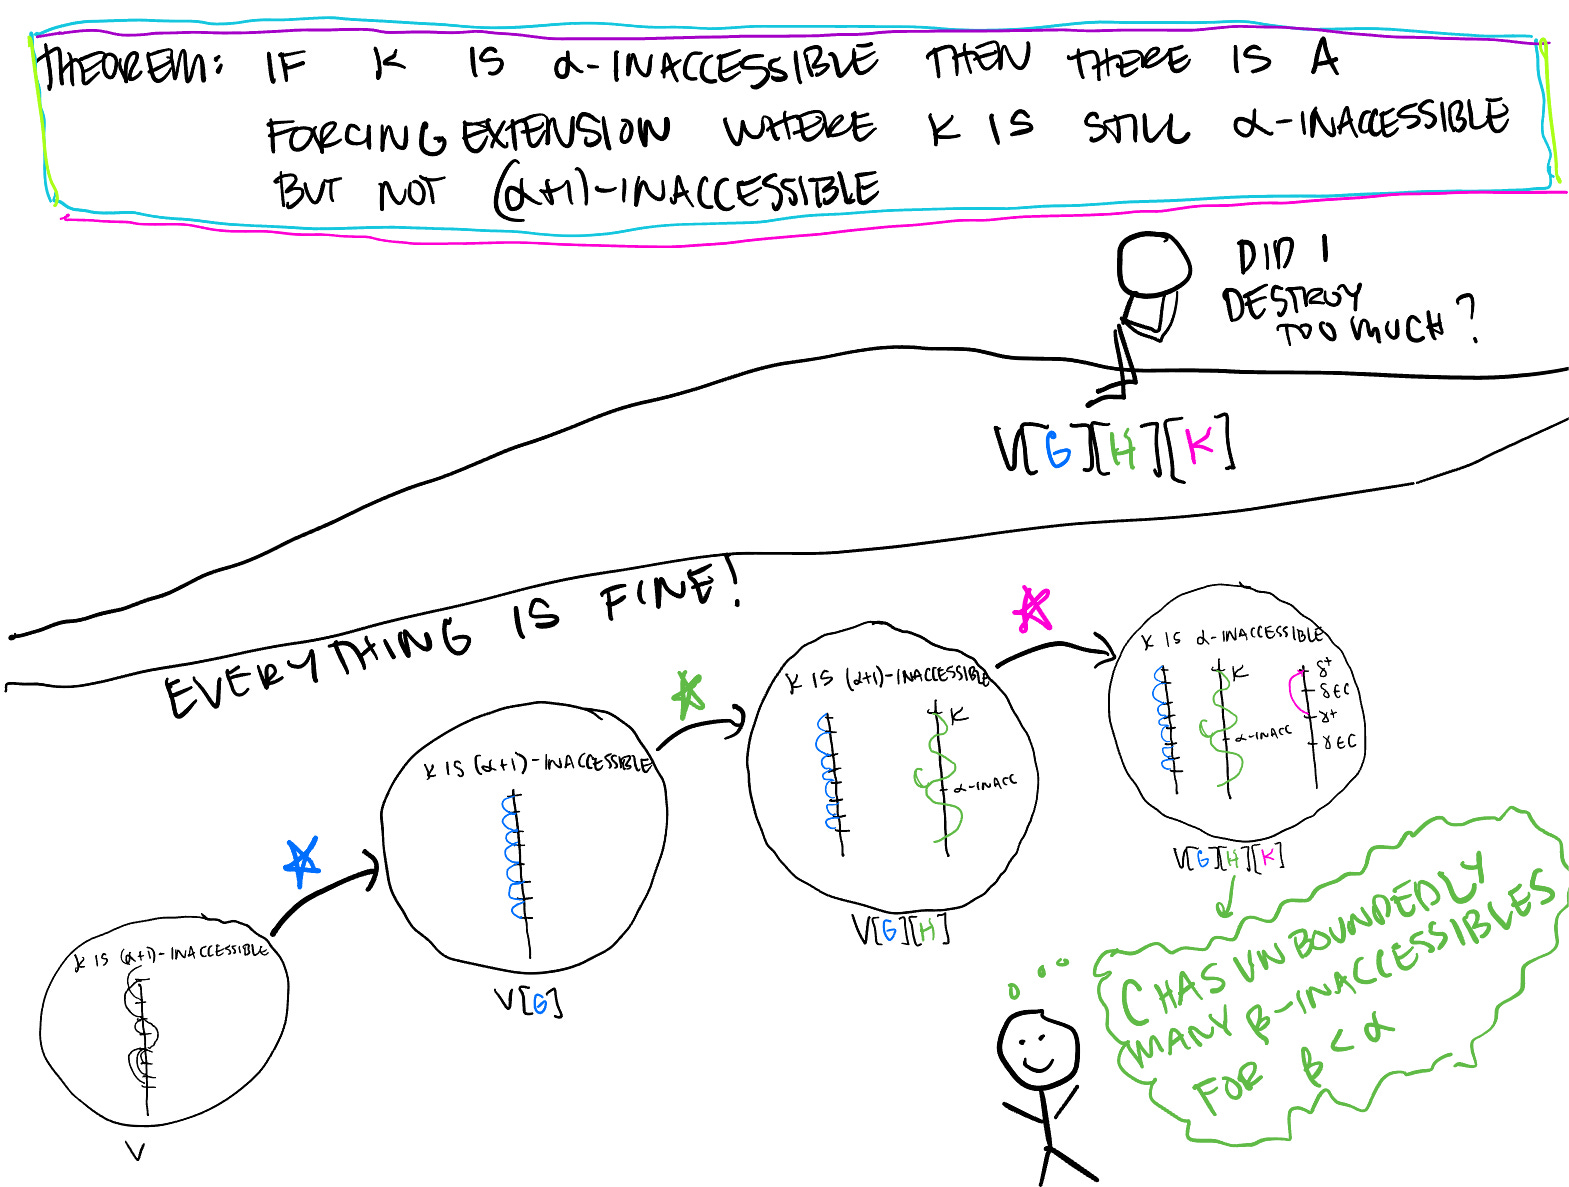 THEOREM: IF K IS α-INACCESSIBLE THEN THERE IS A
FORCING EXTENSION WHERE K IS STILL α-INACCESSIBLE
BUT NOT (α+1)-INACCESSIBLE
DID I
DESTROY
TOO MUCH?
V[G][H][K]
EVERYTHING IS FINE!
K IS (α+1)-INACCESSIBLE
V
K IS (α+1)-INACCESSIBLE
V[G]
K IS (α+1)-INACCESSIBLE
K
α-INACC
V[G][H]
K IS α-INACCESSIBLE
K
α-INACC
δ+
δ∈C
γ+
γ∈C
V[G][H][K]
C HAS UNBOUNDEDLY
MANY β-INACCESSIBLES
FOR β<α